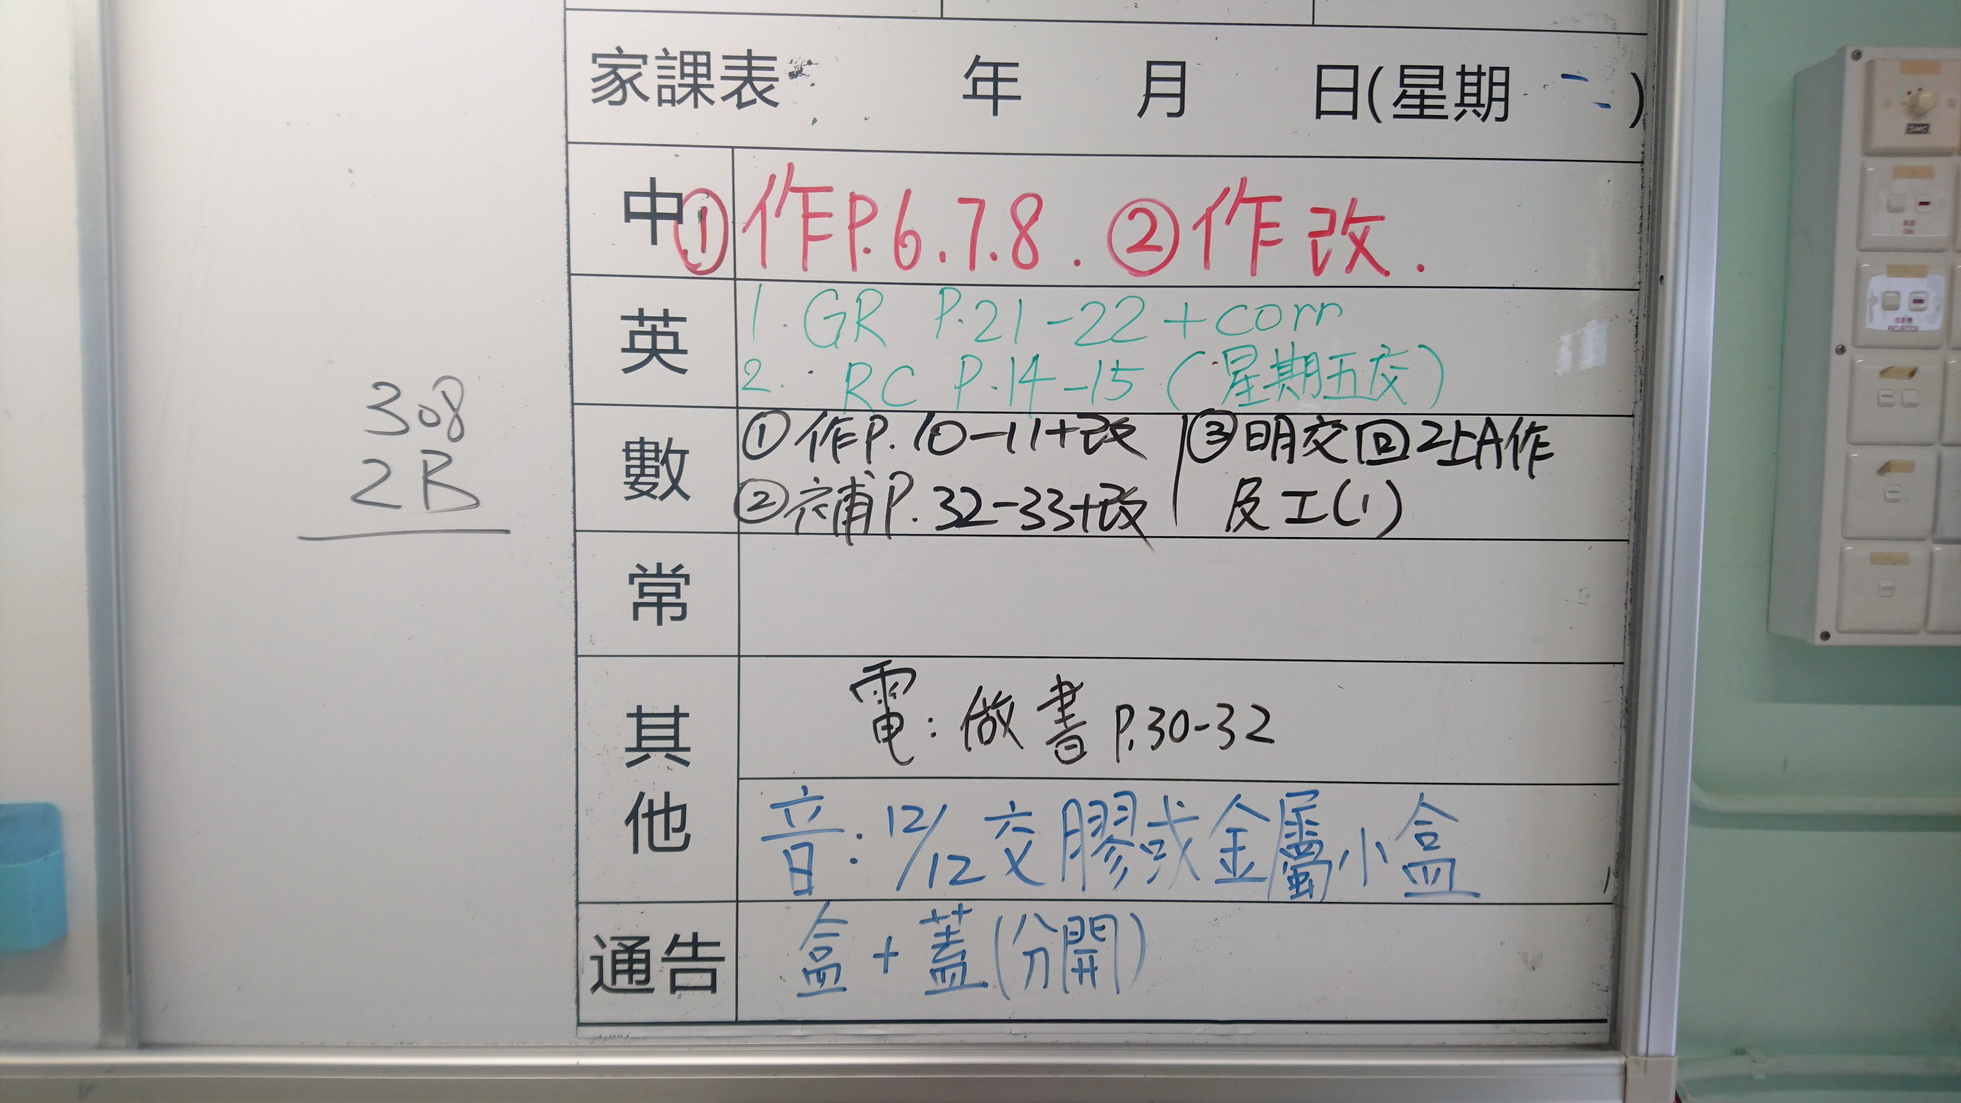 家課表： 年 月 日(星期 二 )
中 ①作P.6.7.8. ②作改.
英 1. GR P.21-22+corr
2. RC P.14-15 (星期五交)
數 ①作P.10-11+改 ③明交回2上A作
②補P.32-33+改 及工(1)
常
308
2B
其他 電：做書P.30-32
音：12/12交膠或金屬小盒
通告 盒+蓋(分開)
PROJECTOR